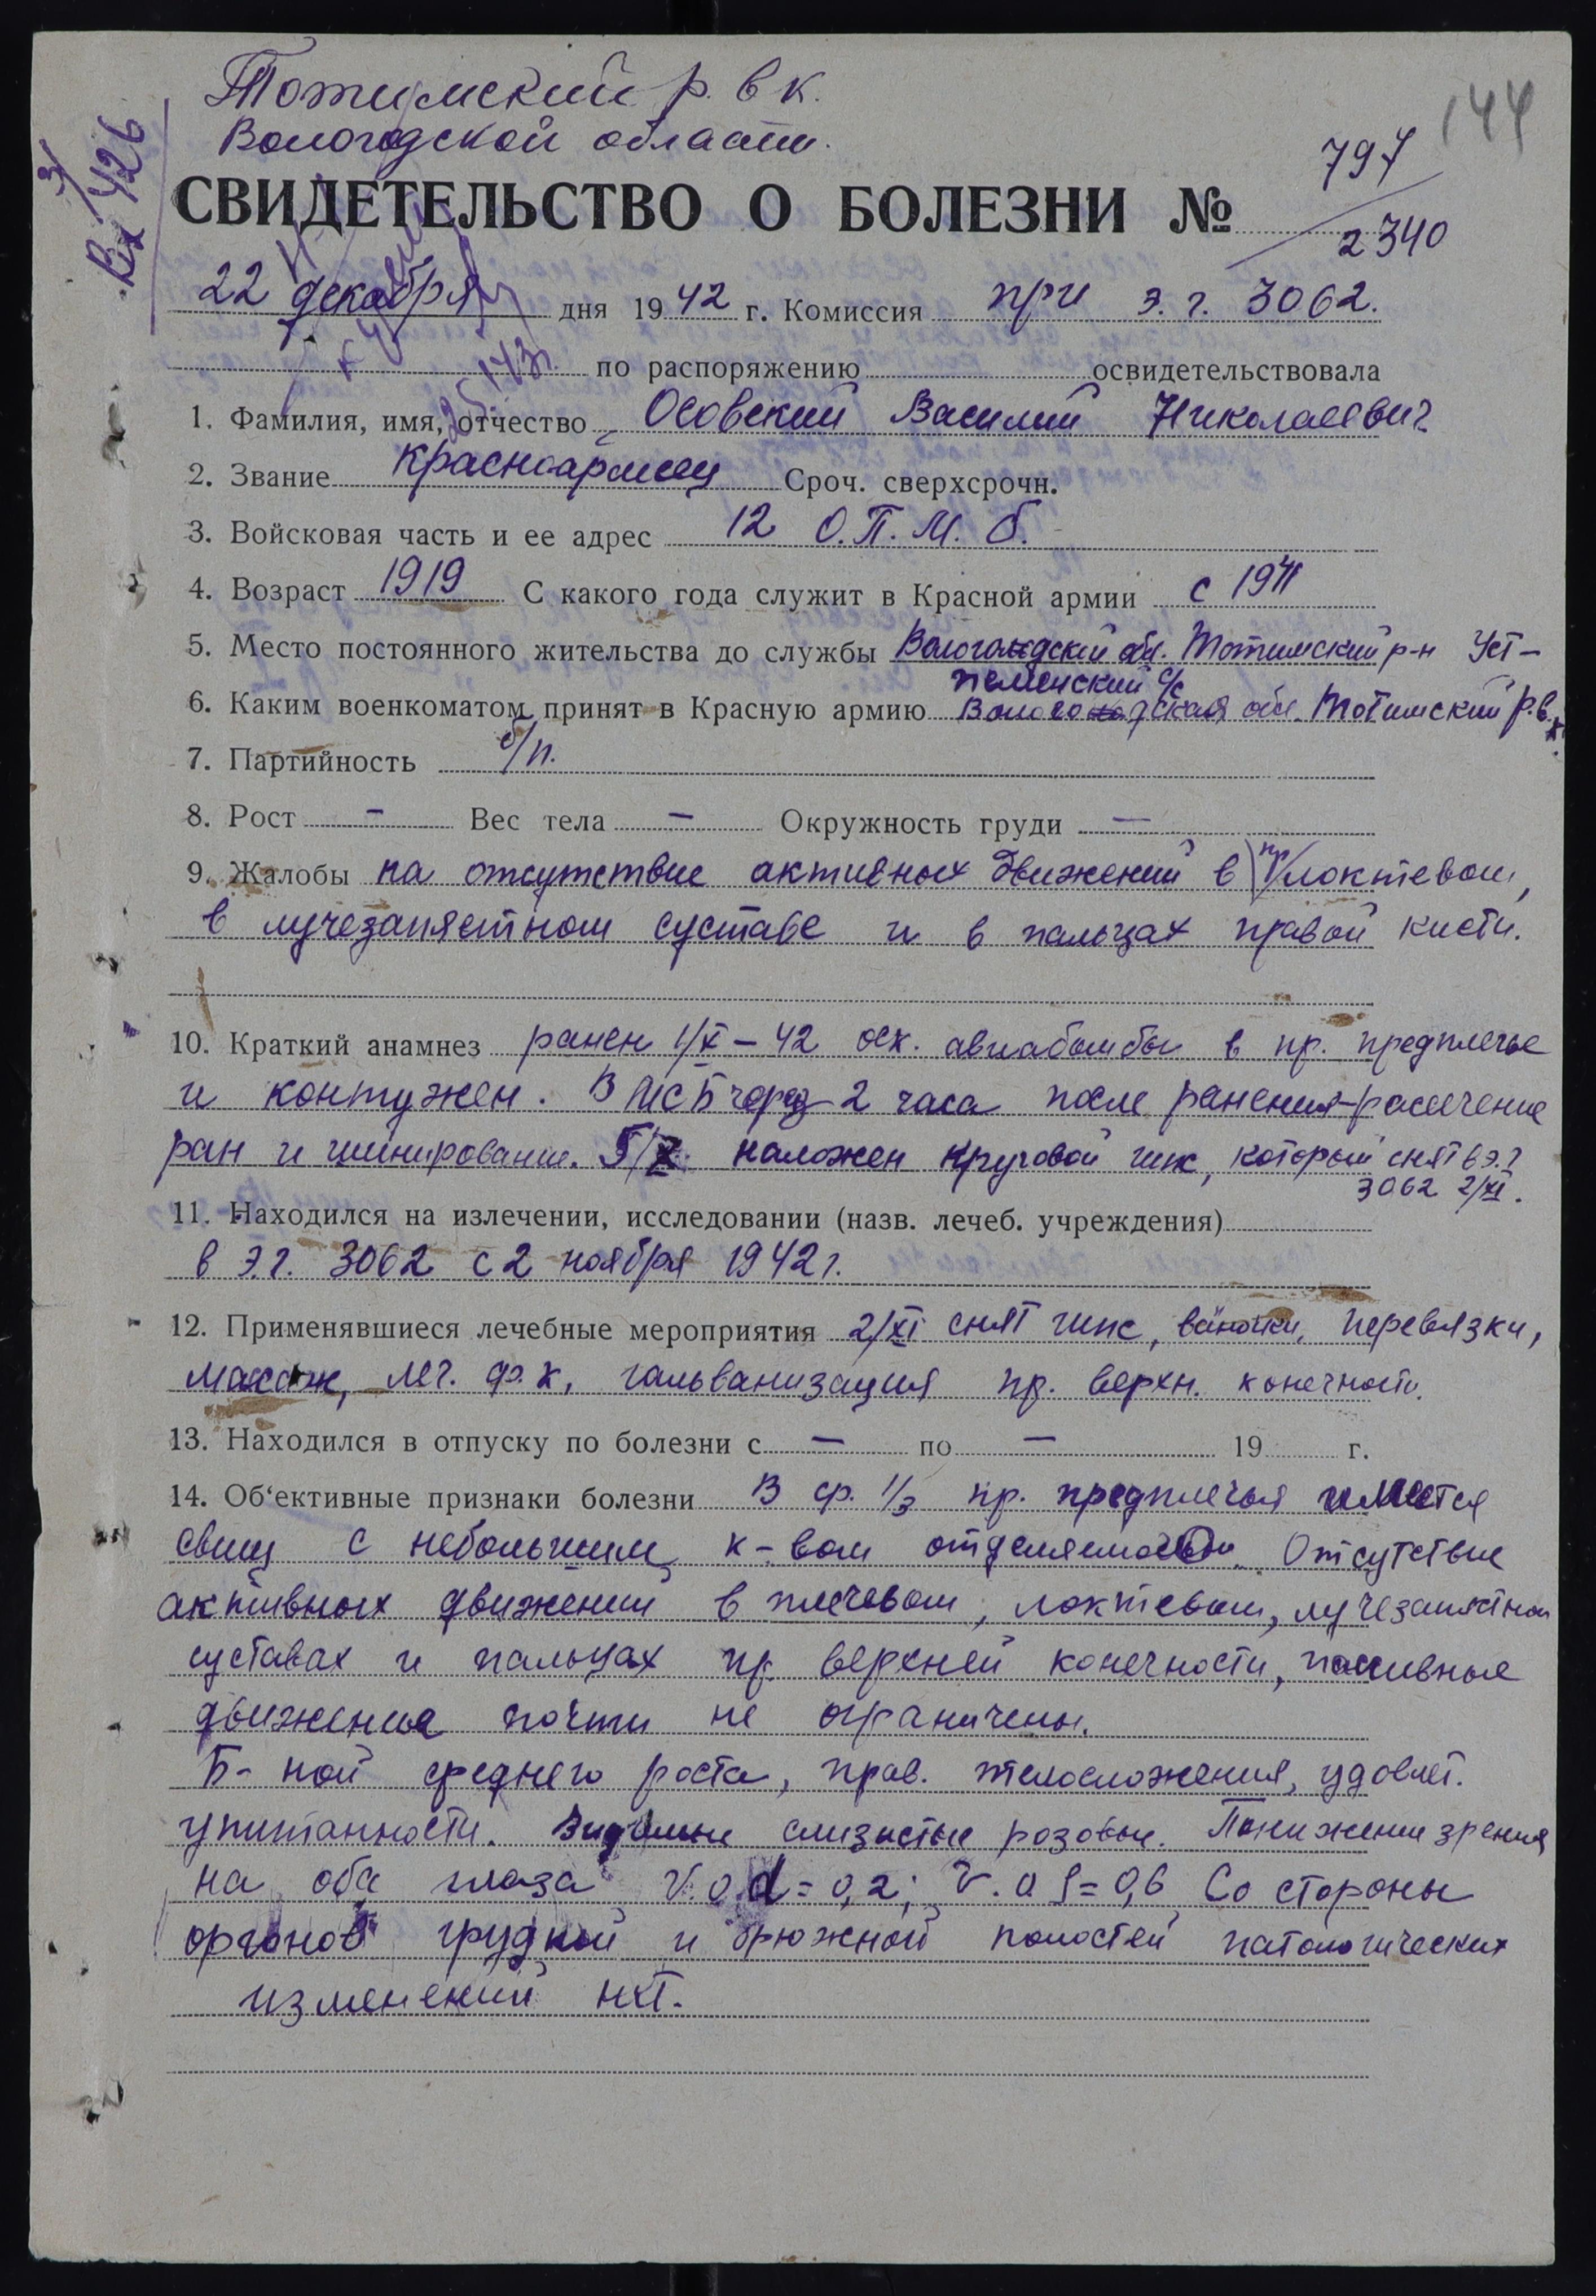 144
Тотемский р.в к.
Вологодской области.
426
СВИДЕТЕЛЬСТВО О БОЛЕЗНИ № 797/2340
22 декабря дня 1942 г. Комиссия при э.г. 3062.
по распоряжению освидетельствовала
1. Фамилия, имя, отчество Осовский Василий Николаевич
2. Звание Красноармеец Сроч. сверхсрочн.
3. Войсковая часть и ее адрес 12 О.П.М.б.
4. Возраст 1919 С какого года служит в Красной армии с 1941
5. Место постоянного жительства до службы Вологодский обл. Тотемский р-н Уст-
печенский с/с
6. Каким военкоматом принят в Красную армию Вологодская обл. Тотемский р.в.к.
7. Партийность б/п.
8. Рост – Вес тела – Окружность груди –
9. Жалобы на отсутствие активных движений в пр/локтевом,
в лучезапястном суставе и в пальцах правой кисти.
10. Краткий анамнез ранен 1/X – 42 оск. авиабомбы в пр. предплечье
и контужен. В МСБ через 2 часа после ранения – рассечение
ран и шинирование. 5/X наложен круговой гипс, который снят в э.г
3062 2/XI.
11. Находился на излечении, исследовании (назв. лечеб. учреждения)
в э.г. 3062 с 2 ноября 1942 г.
12. Применявшиеся лечебные мероприятия 2/XI снят гипс, ванночки, перевязки,
массаж, леч. ф.к, гальванизация пр. верхн. конечности.
13. Находился в отпуску по болезни с – по – 19 г.
14. Об‘ективные признаки болезни В ср. 1/3 пр. предплечья имеется
свищ с небольшим к-вом отделяемого. Отсутствие
активных движений в плечевом, локтевом, лучезапястном
суставах и пальцах пр. верхней конечности, пассивные
движения почти не ограничены.
Б-ной среднего роста, прав. телосложения, удовлет.
упитанности. Видимые слизистые розовые. Понижение зрения
на оба глаза V.o.d = 0,2; V.o.s = 0,6 Со стороны
органов грудной и брюжной полостей патологических
изменений нет.